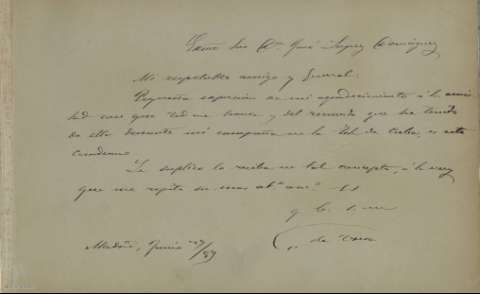 Exmo Sor Dn José Lopez Dominguez
Mi respetable amigo y General:
Pequeña expresion de mi agradecimiento á la amis
tad con que me honra y del recuerdo que he tenido
de ella durante mi campaña en la Isla de Cuba, es este
cuaderno.
Le suplico lo reciba en tal concepto, á la vez
que me repito su mas
q. b. s. m.
Madrid, Junio 27/89